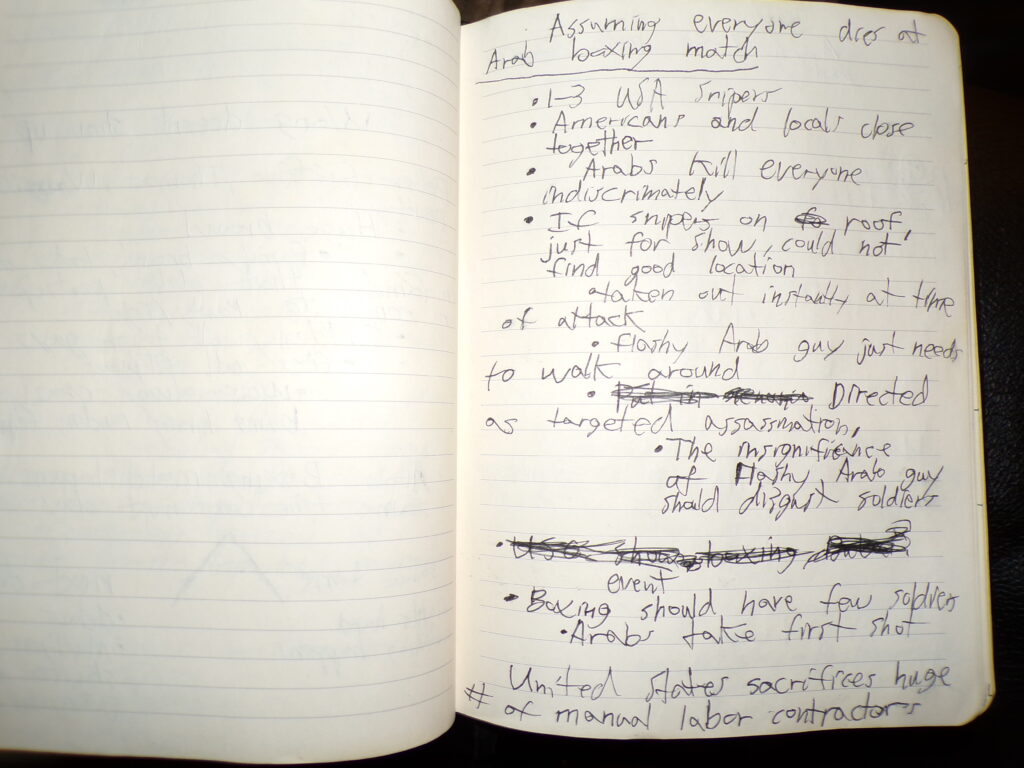 Assuming everyone dies at
Arab boxing match
• 1-3 USA snipers
• Americans and locals close
together
• Arabs kill everyone
indiscrimately
• If snipers on roof,
just for show, could not
find good location
taken out instantly at time
of attack
• flashy Arab guy just needs
to walk around
• Directed
as targeted assassmation,
• The insignificance
of Flashy Arab guy
should disgust soldiers
• USO show, boxing
event
• Boxing should have few soldiers
• Arabs take first shot
United States sacrifices huge
# of manual labor contractors